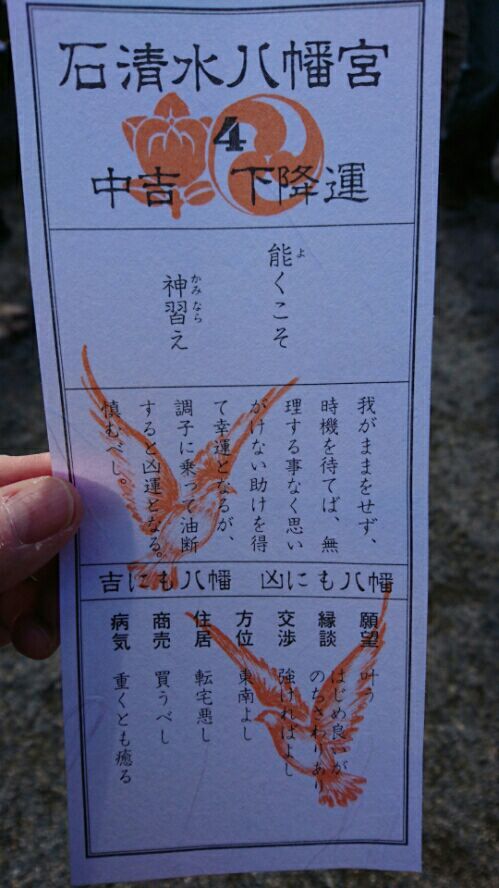 石清水八幡宮
4
中吉 下降運
能くこそ
よ
神習え
かみなら
我がままをせず、
時機を待てば、無
理する事なく思い
がけない助けを得
て幸運となるが、
調子に乗って油断
すると凶運となる。
慎むべし。
吉にも八幡 凶にも八幡
願望 叶う
縁談 はじめ良いが
のちさわりあり
交渉 強ければよし
方位 東南よし
住居 転宅悪し
商売 買うべし
病気 重くとも癒る